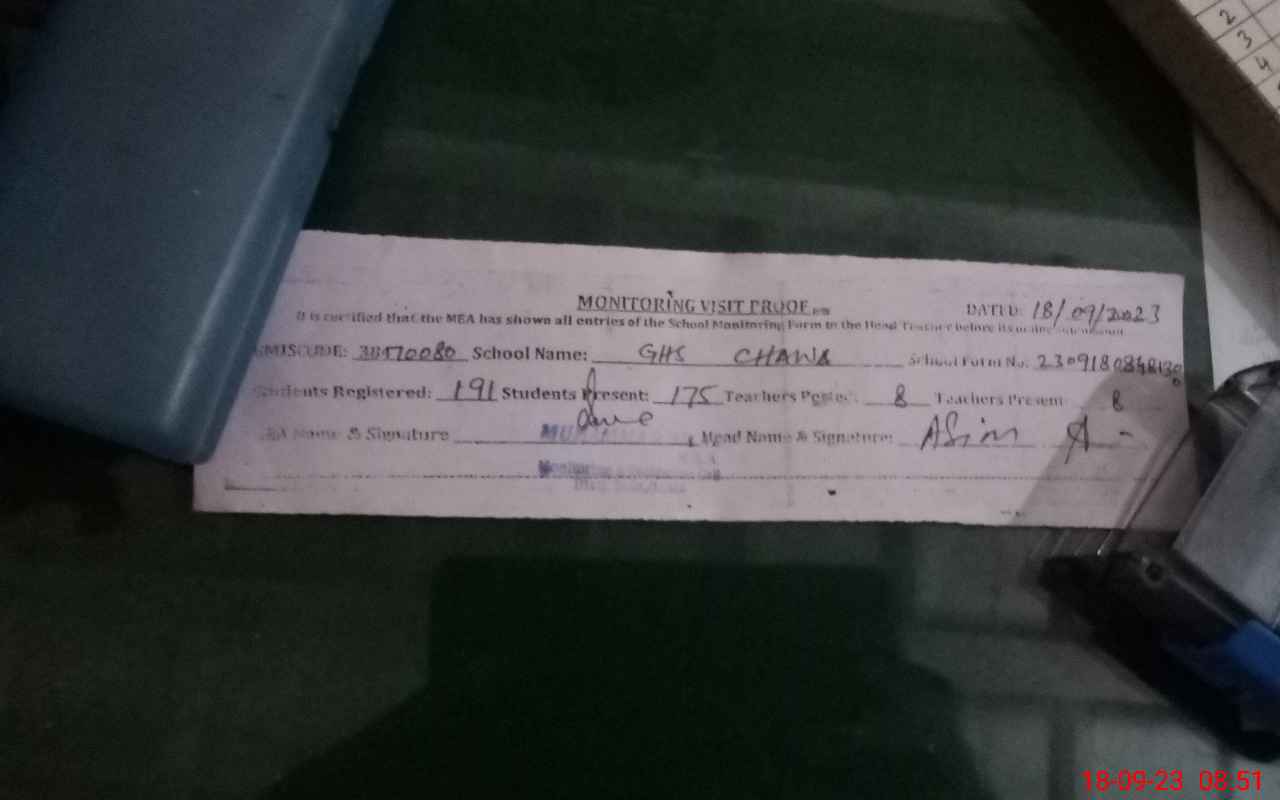 2
3
4
MONITORING VISIT PROOF
DATED: 18/09/2023
It is certified that the MEA has shown all entries of the School Monitoring Form to the Head Teacher before its
EMISCODE: 38170080 School Name: GHS CHAWA School Form No: 2309180848130
Students Registered: 191 Students Present: 175 Teachers Posted: 8 Teachers Present 8
Name & Signature Head Name & Signature: Asim
18-09-23 08.51